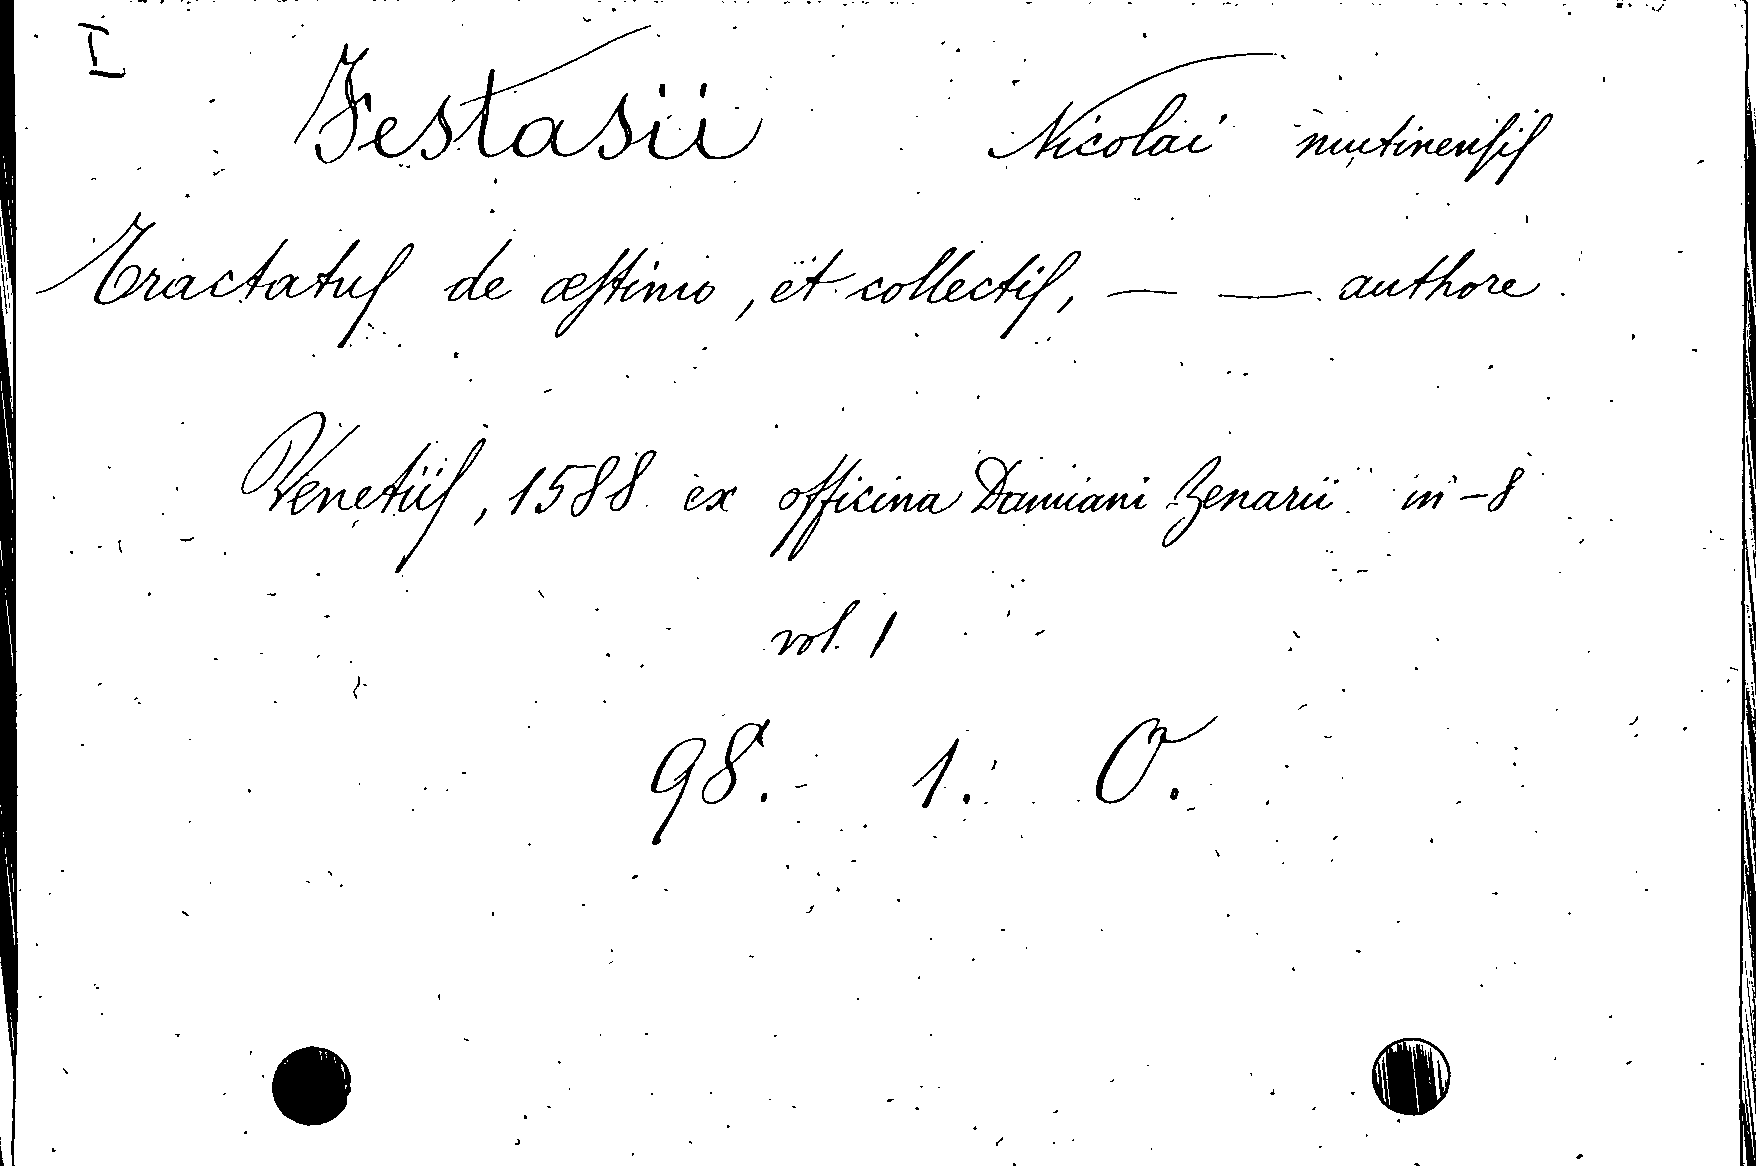 I
Festasii Nicolai mutinensis
Tractatus de æstimo, et collectis, — — authore
Venetiis, 1588 ex officina Damiani Zenarii in-8
vol. 1
98. 1. O.